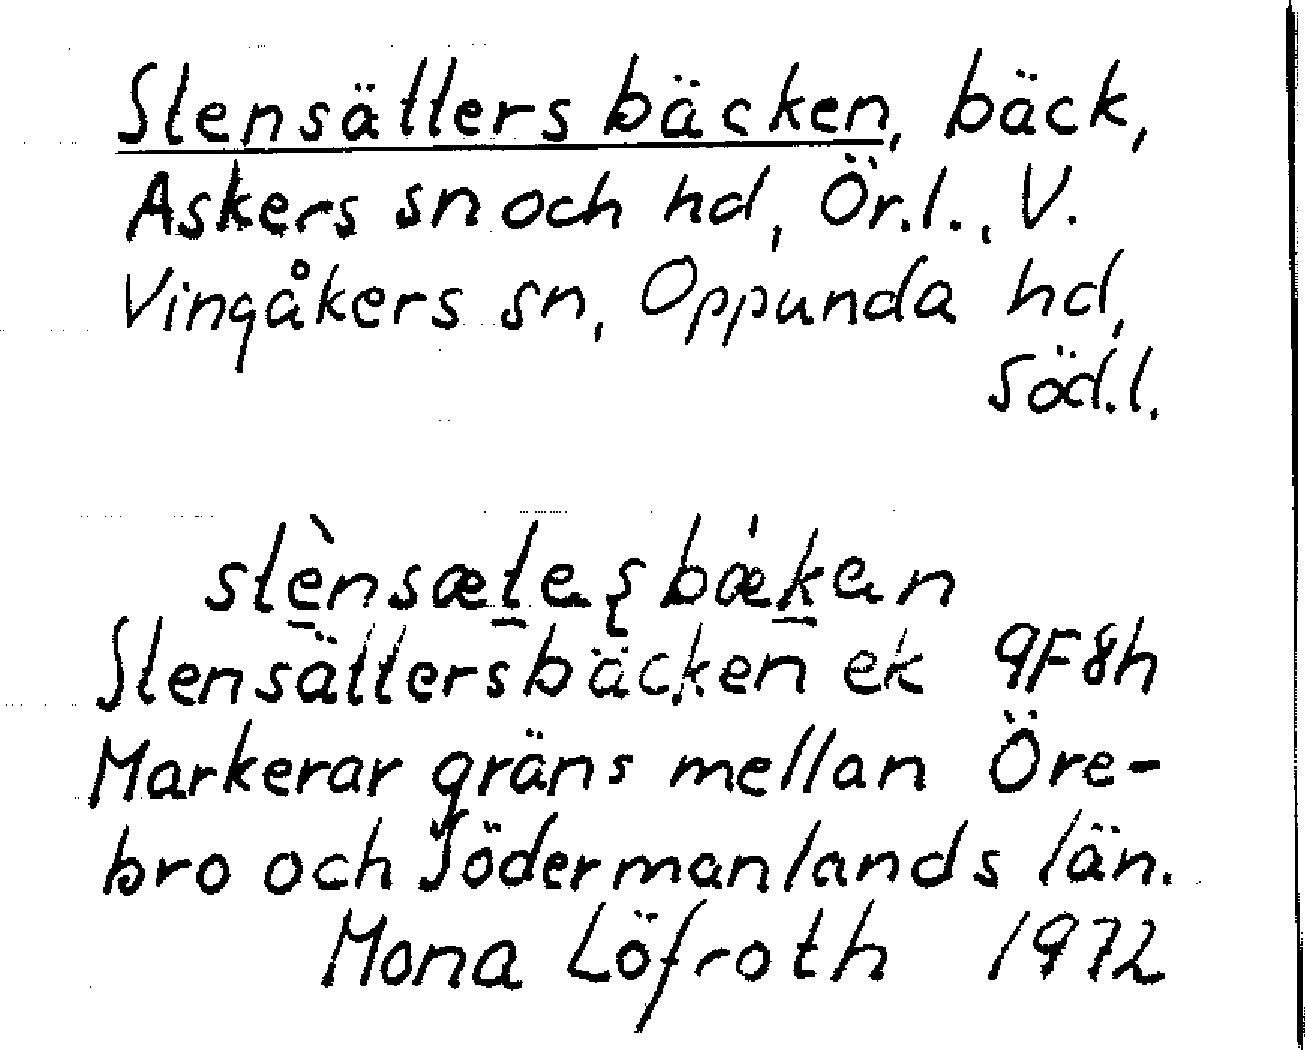 Stensätters bäcken, bäck,
Askers sn och hd, Ör.l., V.
Vingåkers sn, Oppunda hd,
Söd.l.
Stensättersbäcken ek 9F8h
Markerar gräns mellan Öre-
bro och Södermanlands län.
Mona Löfroth 1972